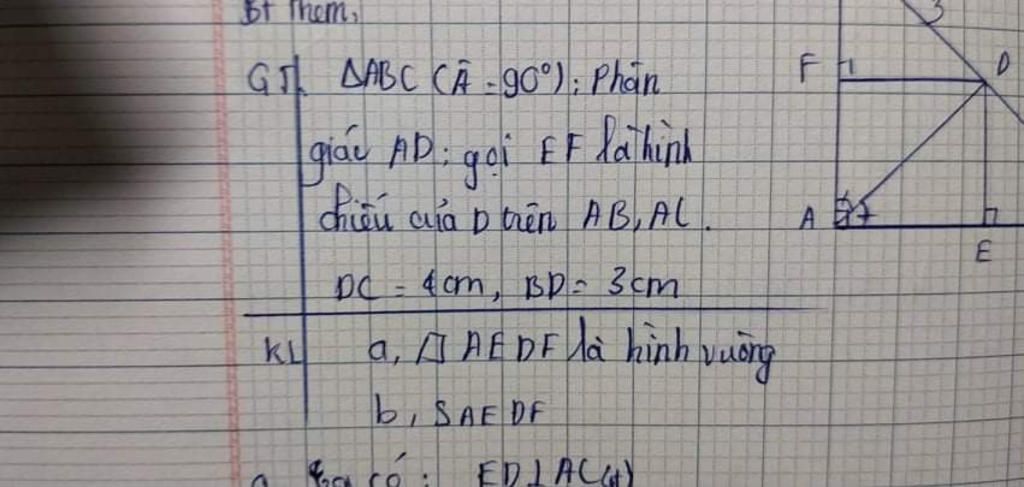 Bt Thêm,
GT ΔABC (Â = 90°); Phân
giác AD; gọi EF là hình
chiếu của D trên AB, AC.
DC = 4cm, BD = 3cm
KL a, □ AEDF là hình vuông
b, SAEDF
a, Ta có: ED⊥AC(gt)
3
F 1 D
A
E